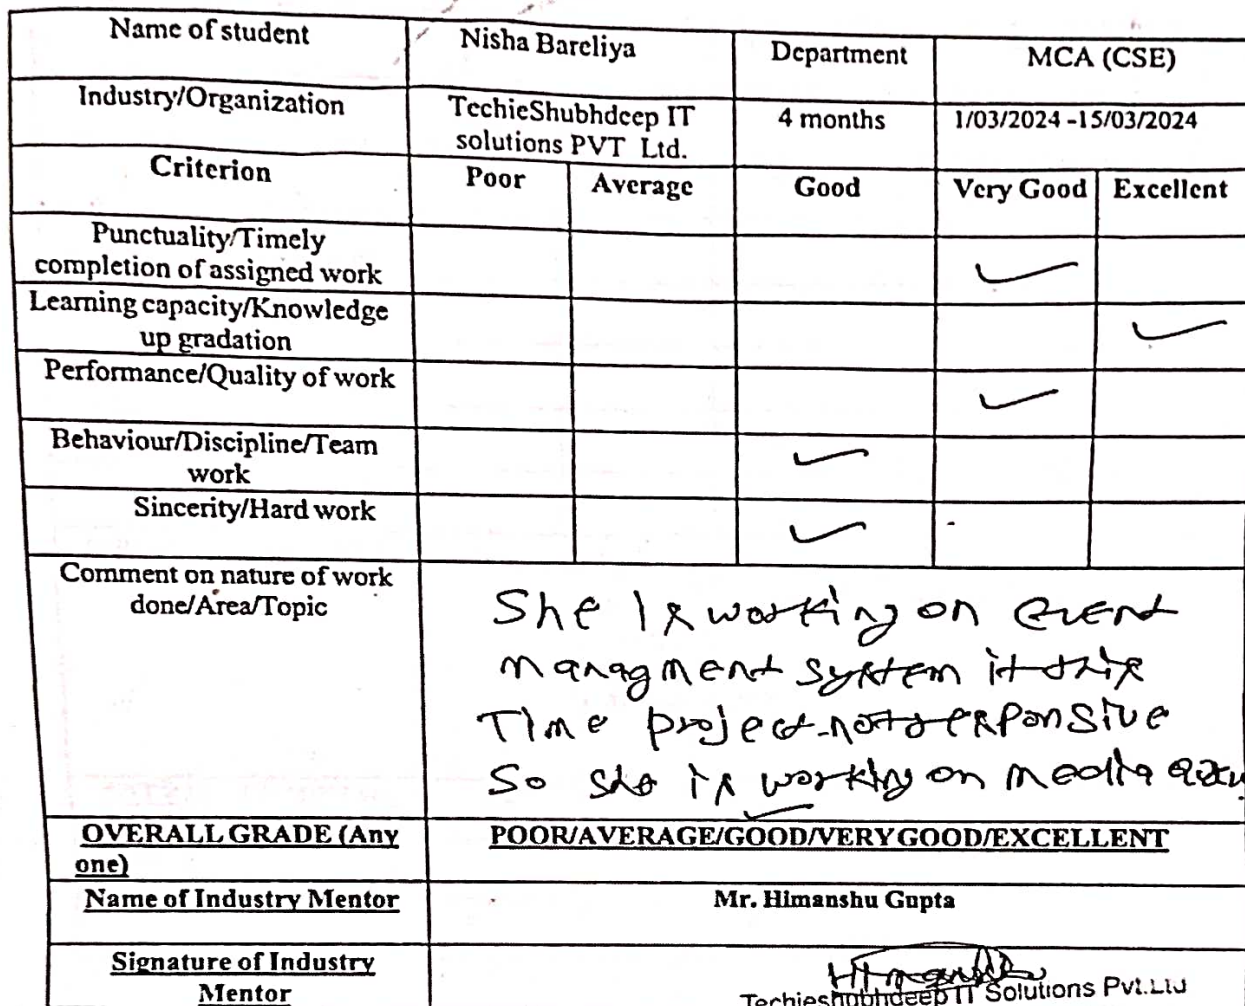 Name of student Nisha Bareliya Department MCA (CSE)
Industry/Organization TechieShubhdeep IT 4 months 1/03/2024 -15/03/2024
solutions PVT Ltd.
Criterion Poor Average Good Very Good Excellent
Punctuality/Timely
completion of assigned work
Learning capacity/Knowledge
up gradation
Performance/Quality of work
Behaviour/Discipline/Team
work
Sincerity/Hard work
Comment on nature of work
done/Area/Topic
She is working on event
managment system it this
Time project not responsive
So she is working on media
OVERALL GRADE (Any
one)
POOR/AVERAGE/GOOD/VERY GOOD/EXCELLENT
Name of Industry Mentor Mr. Himanshu Gupta
Signature of Industry
Mentor
Techieshubhdeep IT Solutions Pvt.Ltd